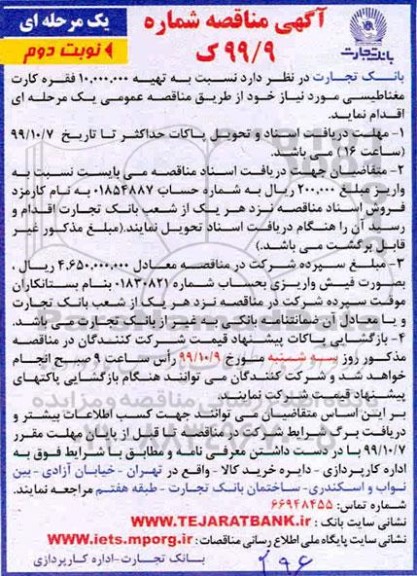 آگهی مناقصه شماره
۹۹/۹ ک
یک مرحله ای
نوبت دوم
بانک تجارت
بانک تجارت در نظر دارد نسبت به تهیه ۱۰,۰۰۰,۰۰۰ فقره کارت
مغناطیسی مورد نیاز خود از طریق مناقصه عمومی یک مرحله ای
اقدام نماید.
۱- مهلت دریافت اسناد و تحویل پاکات حداکثر تا تاریخ ۹۹/۱۰/۷
(ساعت ۱۶) می باشد.
۲- متقاضیان جهت دریافت اسناد مناقصه می بایست نسبت به
واریز مبلغ ۲۰۰,۰۰۰ ریال به شماره حساب ۰۱۸۵۴۸۸۷ به نام کارمزد
فروش اسناد مناقصه نزد هر یک از شعب بانک تجارت اقدام و
رسید آن را هنگام دریافت اسناد تحویل نمایند.(مبلغ مذکور غیر
قابل برگشت می باشد.)
۳- مبلغ سپرده شرکت در مناقصه معادل ۴,۶۵۰,۰۰۰,۰۰۰ ریال ،
بصورت فیش واریزی بحساب شماره ۰۱۸۳۰۸۲۱ بنام بستانکاران
موقت سپرده شرکت در مناقصه نزد هر یک از شعب بانک تجارت
و یا معادل آن ضمانتنامه بانکی به غیر از بانک تجارت می باشد.
۴- بازگشایی پاکات پیشنهاد قیمت شرکت کنندگان در مناقصه
مذکور روز سه شنبه مورخ ۹۹/۱۰/۹ رأس ساعت ۹ صبح انجام
خواهد شد و شرکت کنندگان می توانند هنگام بازگشایی پاکتهای
پیشنهاد قیمت شرکت نمایند.
بر این اساس متقاضیان می توانند جهت کسب اطلاعات بیشتر و
دریافت برگه شرایط شرکت در مناقصه تا قبل از پایان مهلت مقرر
۹۹/۱۰/۷ با در دست داشتن معرفی نامه و مطابق با شرایط فوق به
اداره کارپردازی - دایره خرید کالا - واقع در تهران - خیابان آزادی - بین
نواب و اسکندری - ساختمان بانک تجارت - طبقه هفتم مراجعه نمایند.
شماره تماس: ۶۶۹۴۸۴۵۵
نشانی سایت بانک : WWW.TEJARATBANK.ir
نشانی سایت پایگاه ملی اطلاع رسانی مناقصات : www.iets.mporg.ir
بانک تجارت-اداره کارپردازی
۲۹۶